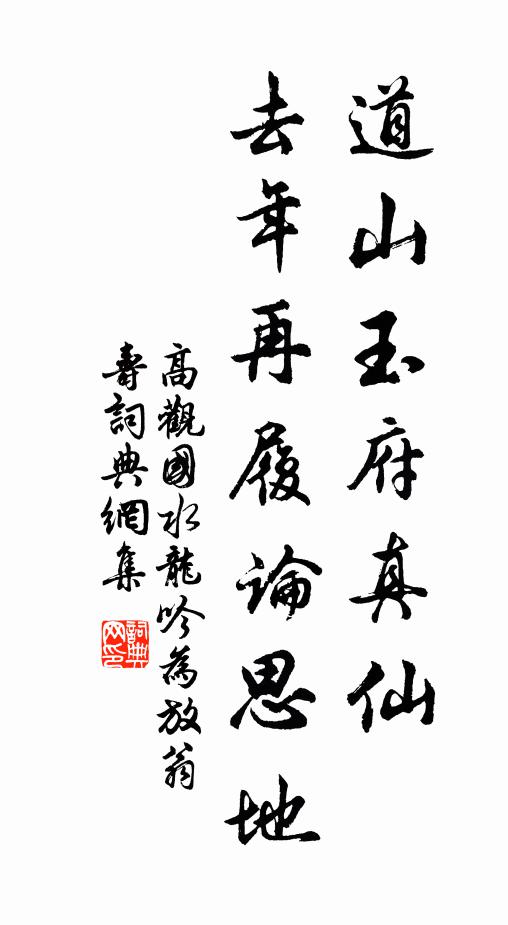 道山玉府真仙
去年再履論思地
高觀國水龍吟為放翁
壽詞典網集
詞典
网印